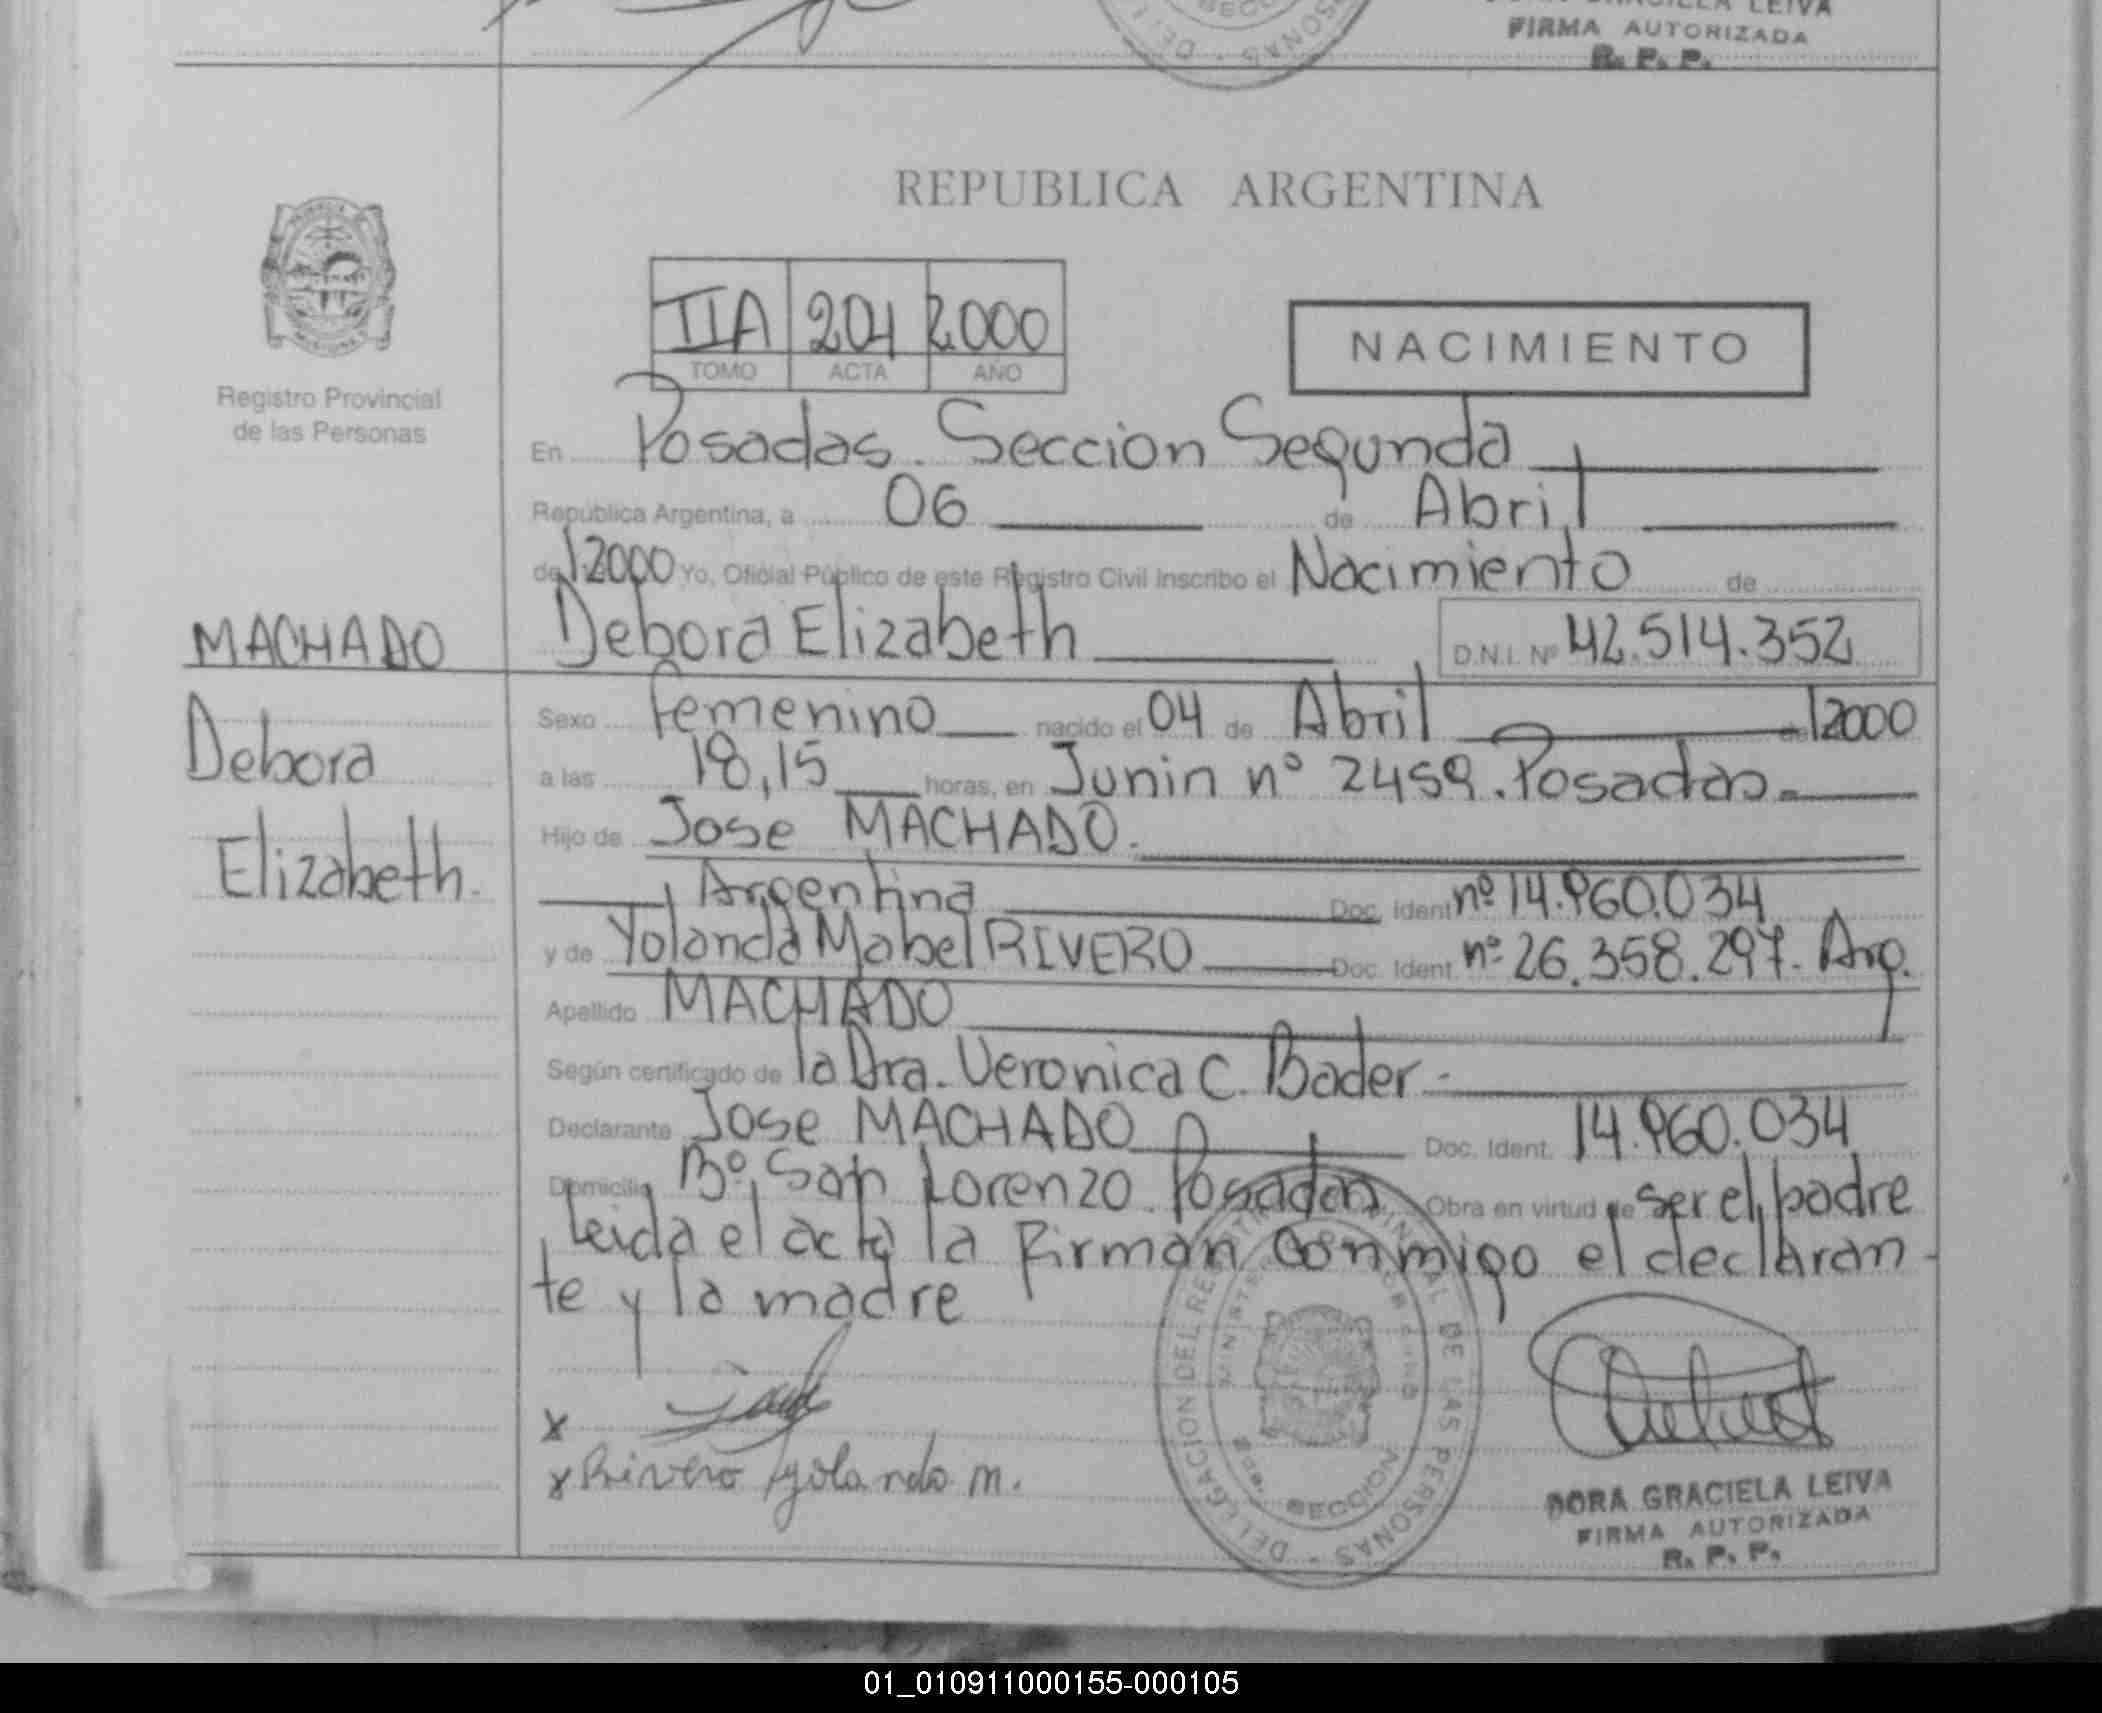 GRACIELA LEIVA
FIRMA AUTORIZADA
R. P. P.
REPUBLICA ARGENTINA
IIA 204 2000
TOMO ACTA AÑO
NACIMIENTO
Registro Provincial
de las Personas
En Posadas. Seccion Segunda
República Argentina, a 06 de Abril
de 2000 Yo, Oficial Público de este Registro Civil inscribo el Nacimiento de
Debora Elizabeth D.N.I. Nº 42.514.352
MACHADO
Debora
Elizabeth.
Sexo femenino nacido el 04 de Abril de 2000
a las 18,15 horas, en Junin nº 2459. Posadas.
Hijo de Jose MACHADO.
Argentina Doc. Ident nº 14.960.034
y de Yolanda Mabel RIVERO Doc. Ident. nº 26.358.297. Arg.
Apellido MACHADO
Según certificado de la Dra. Veronica C. Bader.
Declarante Jose MACHADO Doc. Ident. 14.960.034
Domicilio Bº San Lorenzo. Posadas Obra en virtud de ser el padre
Leida el acta la firman conmigo el declaran-
te y la madre
x
x Rivero Yolanda M.
DELEGACION DEL REGISTRO PROVINCIAL DE LAS PERSONAS
SECCION
DORA GRACIELA LEIVA
FIRMA AUTORIZADA
R. P. P.
01_010911000155-000105